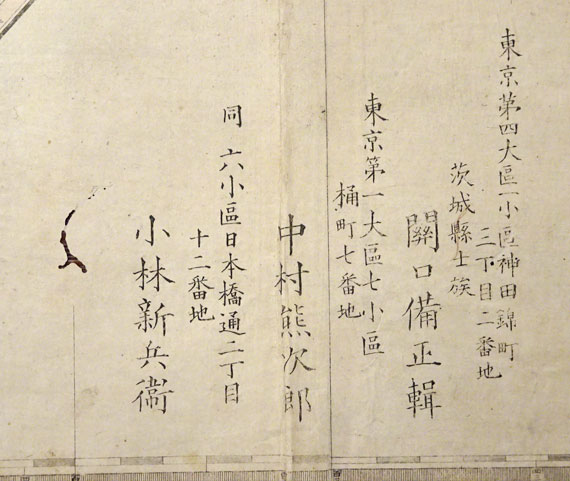 東京第四大區一小區神田錦町
三丁目二番地
茨城縣士族
關口備正輯
東京第一大區七小區
桶町七番地
中村熊次郎
同 六小區日本橋通二丁目
十二番地
小林新兵衞